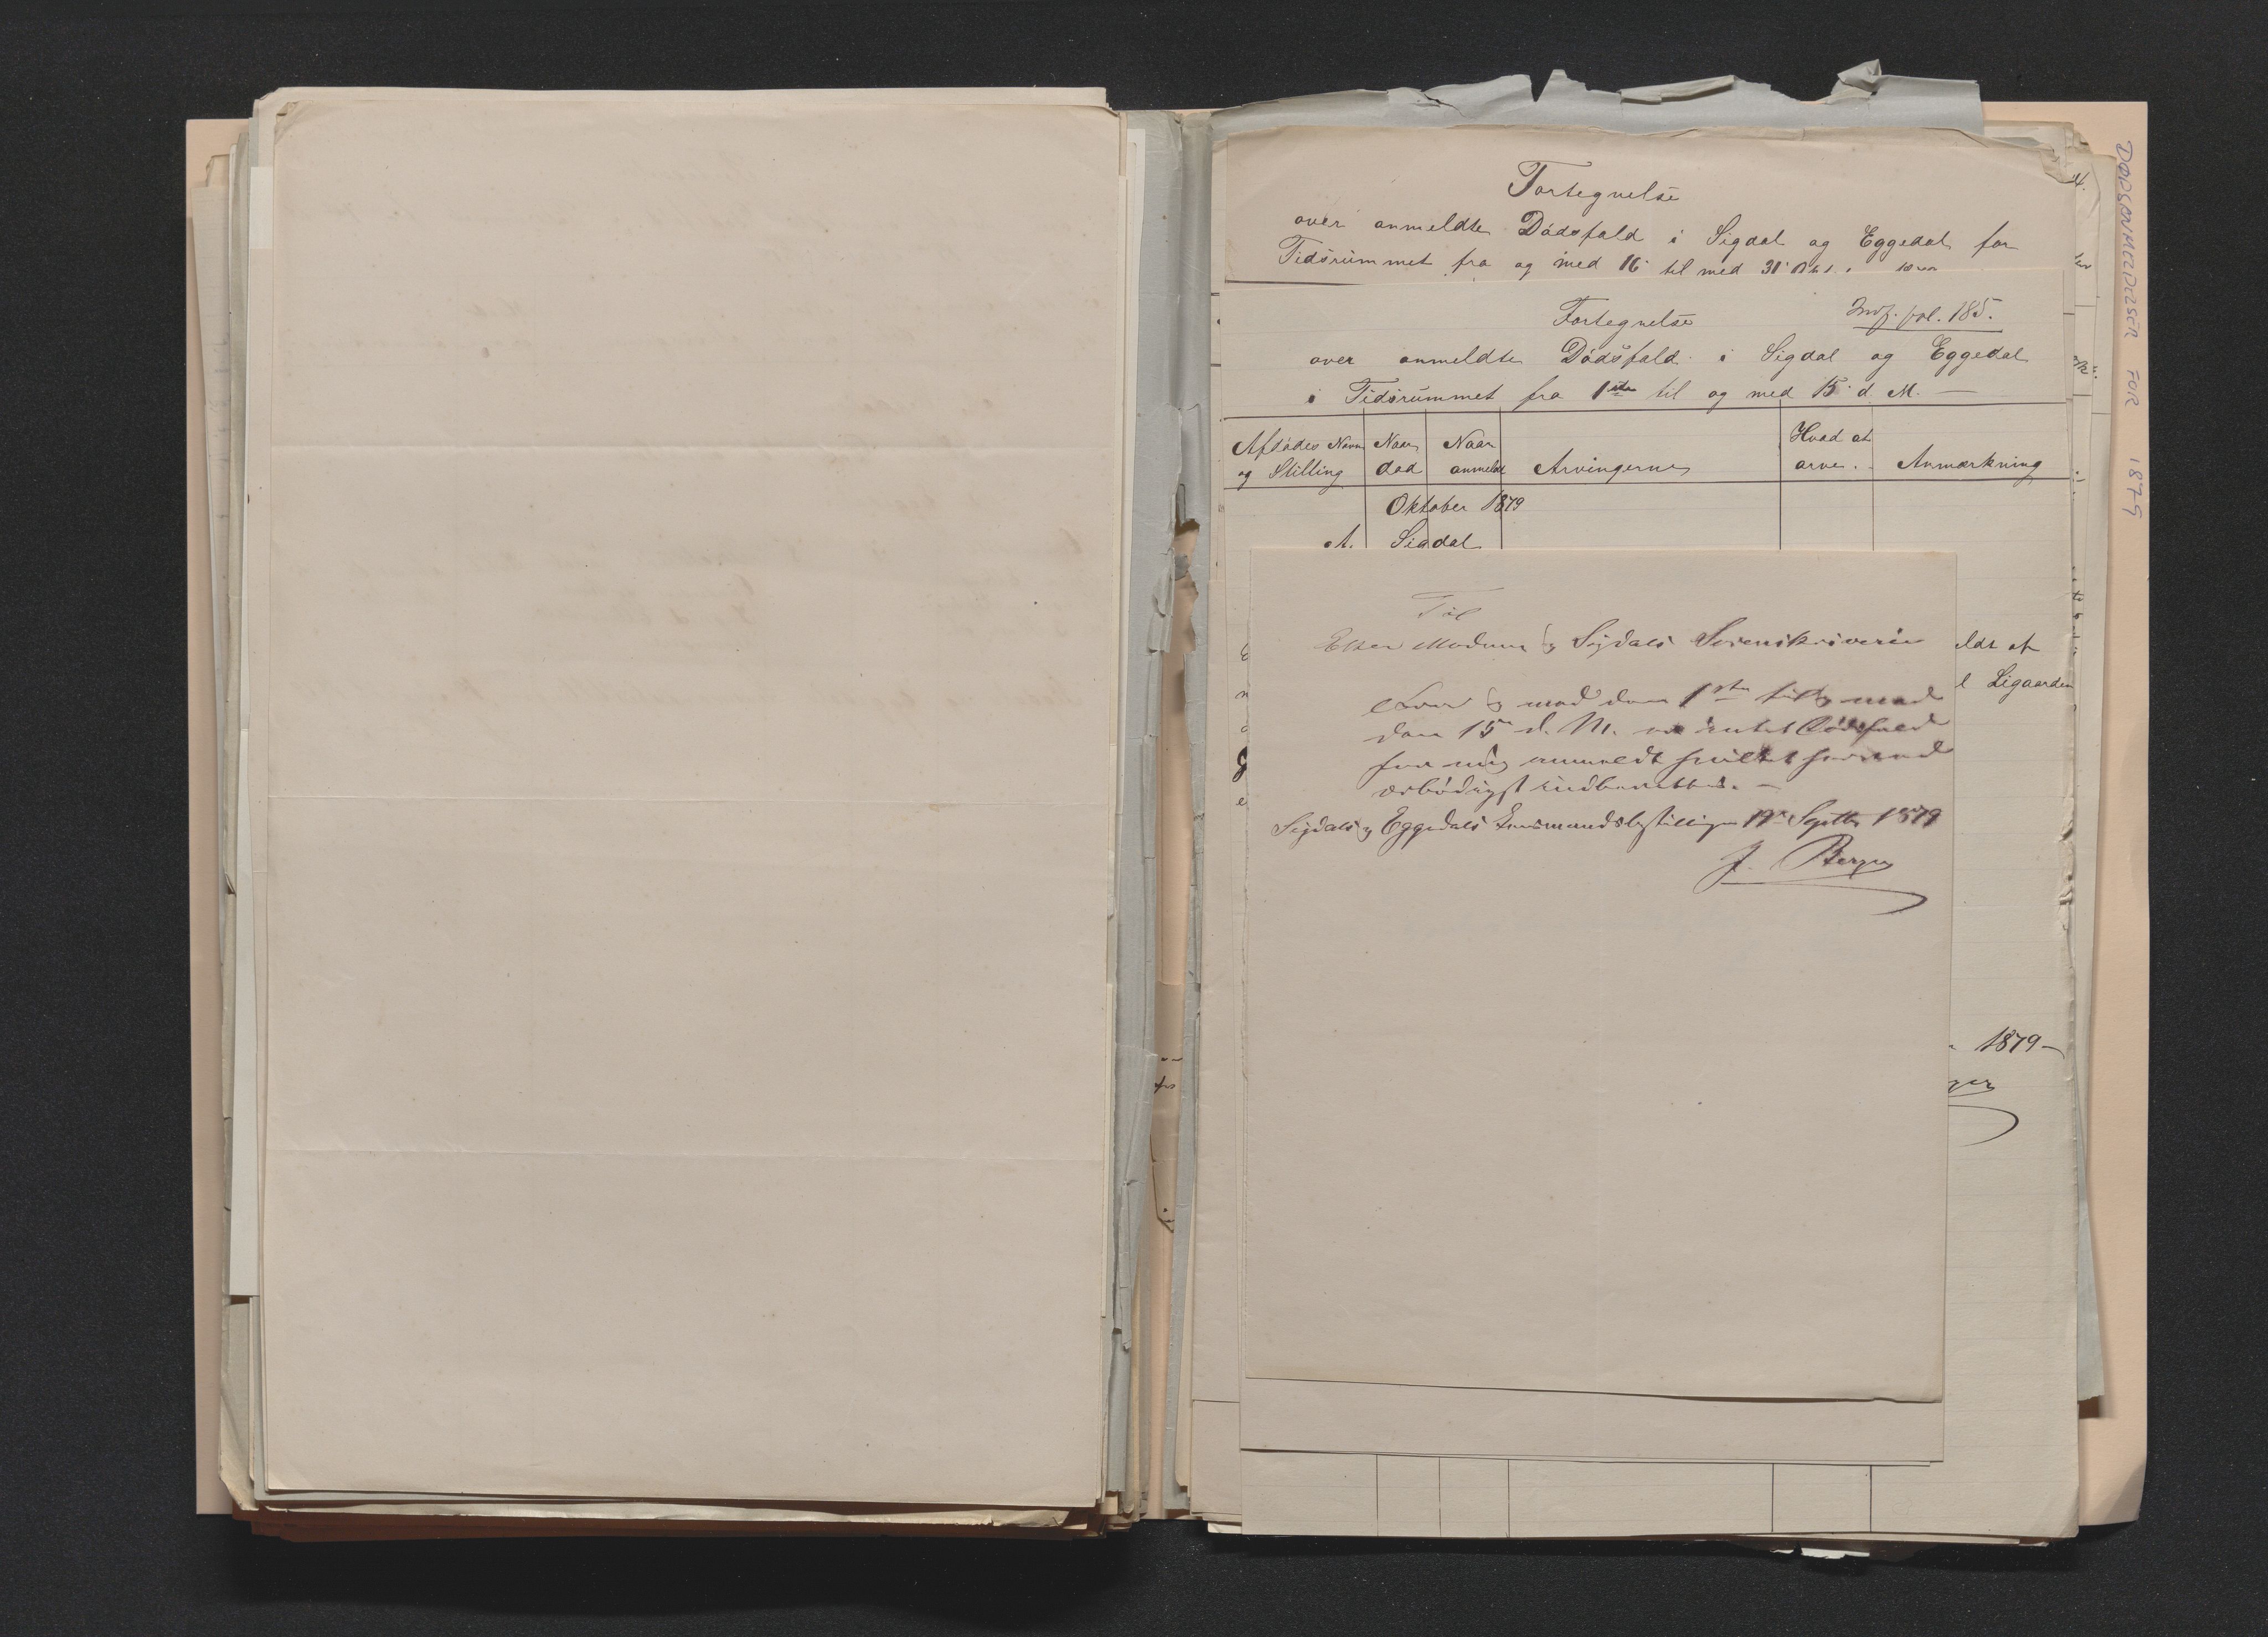 Fortegnelse
over anmeldte Dödsfald i Sigdal og Eggedal for
Tidsrummet fra og med 16 til med 31
Fortegnelse
Indf. fol. 185.
over anmeldte Dödsfald i Sigdal og Eggedal
i Tidsrummet fra 1ste til og med 15 d M. —
Afdødes Navn og Stilling
Naar død
Naar anmeldt
Arvingerne
Hvad at arve.
Anmærkning
Oktober 1879
A. Sigdal
Til
Eker Modum & Sigdals Sorenskriverie
og med den 1ste til og med
den 15 d. M. er intet Dødsfald
for mig anmeldt hvilket herved
ærbødigst indberettes. —
Sigdals & Eggedals Lensmandsbestilling 19 Septbr 1879
J. Berger
ldt af
l Ligaarden
1879—
ger
DØDSANMELDELSER FOR 1879